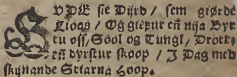 GVDE sie Dijrd / sem giørde
Lioos / Og giefur eñ nija Byr
tu off / Sool og Tungl / Drott⸗
eñ dyrstur skoop / I Dag med
skijnande Stiarna Hoop.